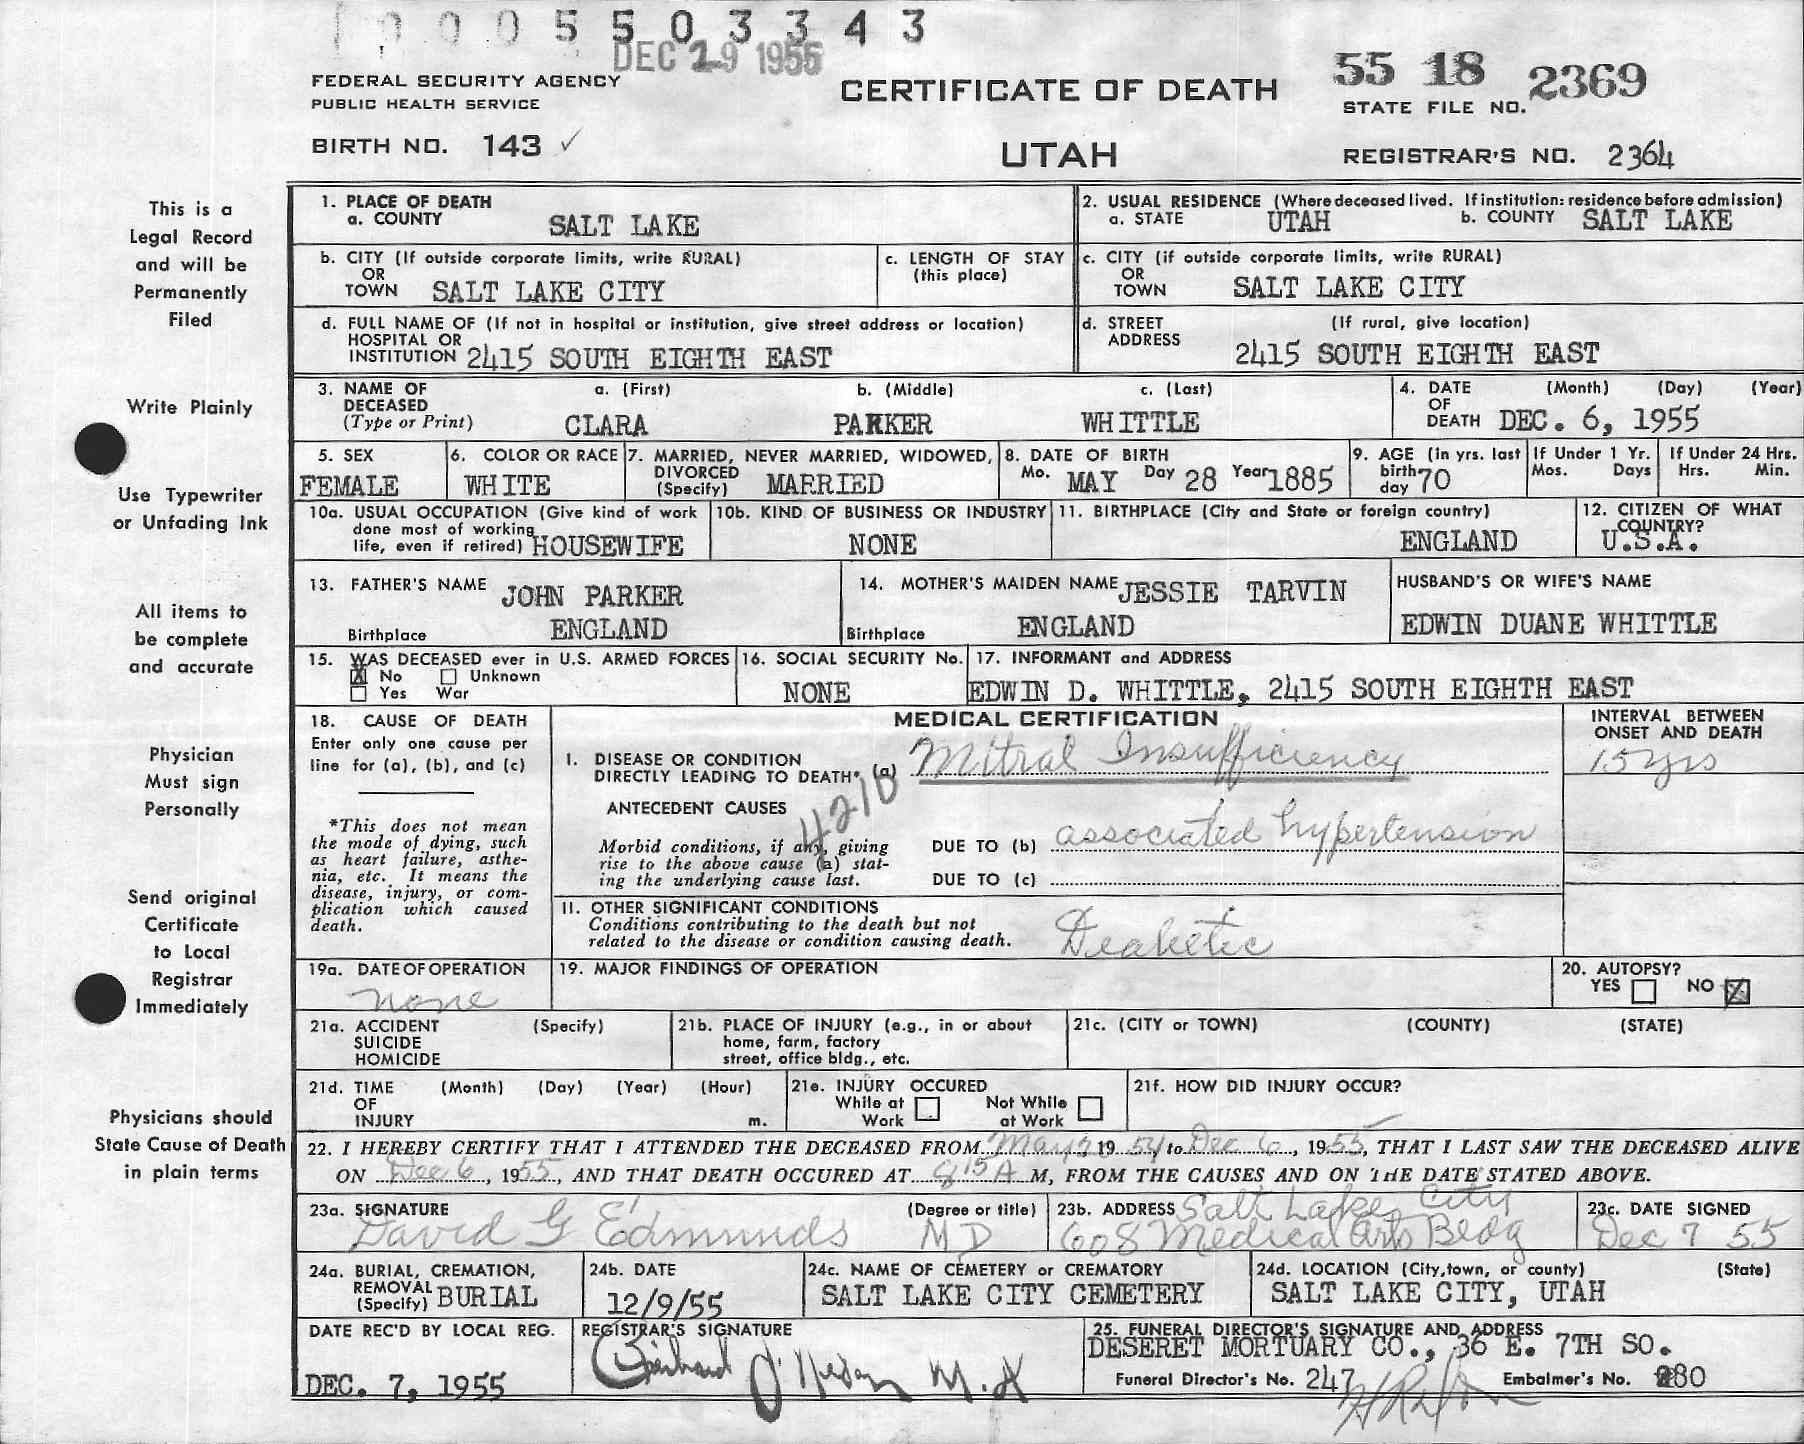 0005503343
DEC 29 1955
FEDERAL SECURITY AGENCY
PUBLIC HEALTH SERVICE
BIRTH NO. 143 ✓
CERTIFICATE OF DEATH
UTAH
55 18 2369
STATE FILE NO.
REGISTRAR'S NO. 2364
This is a
Legal Record
and will be
Permanently
Filed
Write Plainly
Use Typewriter
or Unfading Ink
All items to
be complete
and accurate
Physician
Must sign
Personally
Send original
Certificate
to Local
Registrar
Immediately
Physicians should
State Cause of Death
in plain terms
1. PLACE OF DEATH
a. COUNTY SALT LAKE
2. USUAL RESIDENCE (Where deceased lived. If institution: residence before admission)
a. STATE UTAH b. COUNTY SALT LAKE
b. CITY (If outside corporate limits, write RURAL)
OR
TOWN SALT LAKE CITY
c. LENGTH OF STAY
(this place)
c. CITY (if outside corporate limits, write RURAL)
OR
TOWN SALT LAKE CITY
d. FULL NAME OF (If not in hospital or institution, give street address or location)
HOSPITAL OR
INSTITUTION 2415 SOUTH EIGHTH EAST
d. STREET (If rural, give location)
ADDRESS
2415 SOUTH EIGHTH EAST
3. NAME OF a. (First) b. (Middle) c. (Last)
DECEASED
(Type or Print) CLARA PARKER WHITTLE
4. DATE (Month) (Day) (Year)
OF
DEATH DEC. 6, 1955
5. SEX
FEMALE
6. COLOR OR RACE
WHITE
7. MARRIED, NEVER MARRIED, WIDOWED,
DIVORCED
(Specify) MARRIED
8. DATE OF BIRTH
Mo. MAY Day 28 Year 1885
9. AGE (In yrs. last
birth
day 70
If Under 1 Yr.
Mos. Days
If Under 24 Hrs.
Hrs. Min.
10a. USUAL OCCUPATION (Give kind of work
done most of working
life, even if retired) HOUSEWIFE
10b. KIND OF BUSINESS OR INDUSTRY
NONE
11. BIRTHPLACE (City and State or foreign country)
ENGLAND
12. CITIZEN OF WHAT
COUNTRY?
U.S.A.
13. FATHER'S NAME JOHN PARKER
Birthplace ENGLAND
14. MOTHER'S MAIDEN NAME JESSIE TARVIN
Birthplace ENGLAND
HUSBAND'S OR WIFE'S NAME
EDWIN DUANE WHITTLE
15. WAS DECEASED ever in U.S. ARMED FORCES
X No Unknown
Yes War
16. SOCIAL SECURITY No.
NONE
17. INFORMANT and ADDRESS
EDWIN D. WHITTLE, 2415 SOUTH EIGHTH EAST
18. CAUSE OF DEATH
Enter only one cause per
line for (a), (b), and (c)
*This does not mean
the mode of dying, such
as heart failure, asthe-
nia, etc. It means the
disease, injury, or com-
plication which caused
death.
MEDICAL CERTIFICATION
INTERVAL BETWEEN
ONSET AND DEATH
I. DISEASE OR CONDITION
DIRECTLY LEADING TO DEATH* (a) Mitral Insufficiency 15 yrs
ANTECEDENT CAUSES
4210
Morbid conditions, if any, giving
rise to the above cause (a) stat-
ing the underlying cause last.
DUE TO (b) associated hypertension
DUE TO (c)
II. OTHER SIGNIFICANT CONDITIONS
Conditions contributing to the death but not
related to the disease or condition causing death.
Deabetic
19a. DATE OF OPERATION
none
19. MAJOR FINDINGS OF OPERATION
20. AUTOPSY?
YES NO X
21a. ACCIDENT (Specify)
SUICIDE
HOMICIDE
21b. PLACE OF INJURY (e.g., in or about
home, farm, factory
street, office bldg., etc.
21c. (CITY or TOWN) (COUNTY) (STATE)
21d. TIME (Month) (Day) (Year) (Hour)
OF
INJURY m.
21e. INJURY OCCURED
While at Not While
Work at Work
21f. HOW DID INJURY OCCUR?
22. I HEREBY CERTIFY THAT I ATTENDED THE DECEASED FROM May 2 1954 to Dec 6, 1955, THAT I LAST SAW THE DECEASED ALIVE
ON Dec 6, 1955, AND THAT DEATH OCCURED AT 8 15 A M, FROM THE CAUSES AND ON THE DATE STATED ABOVE.
23a. SIGNATURE (Degree or title)
David G Edmunds MD
23b. ADDRESS Salt Lake City
608 Medical Arts Bldg
23c. DATE SIGNED
Dec 7 55
24a. BURIAL, CREMATION,
REMOVAL
(Specify) BURIAL
24b. DATE
12/9/55
24c. NAME OF CEMETERY or CREMATORY
SALT LAKE CITY CEMETERY
24d. LOCATION (City, town, or county) (State)
SALT LAKE CITY, UTAH
DATE REC'D BY LOCAL REG.
DEC. 7, 1955
REGISTRAR'S SIGNATURE
25. FUNERAL DIRECTOR'S SIGNATURE AND ADDRESS
DESERET MORTUARY CO., 36 E. 7TH SO.
Funeral Director's No. 247 Embalmer's No. 280